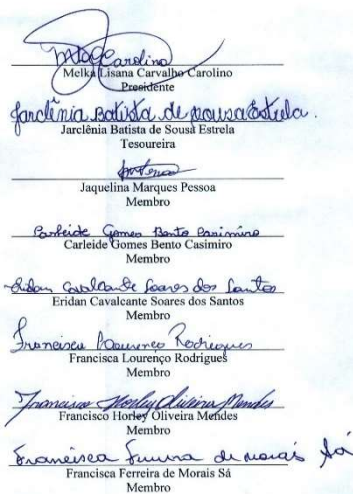 Carolino
Melka Lisana Carvalho Carolino
Presidente
Jarclênia Batista de Sousa Estrela.
Jarclênia Batista de Sousa Estrela
Tesoureira
Jaquelina Marques Pessoa
Membro
Carleide Gomes Bento Casimiro
Carleide Gomes Bento Casimiro
Membro
Eridan Cavalcante Soares dos Santos
Eridan Cavalcante Soares dos Santos
Membro
Francisca Lourenço Rodrigues
Francisca Lourenço Rodrigues
Membro
Francisco Horley Oliveira Mendes
Francisco Horley Oliveira Mendes
Membro
Francisca Ferreira de Morais Sá
Francisca Ferreira de Morais Sá
Membro